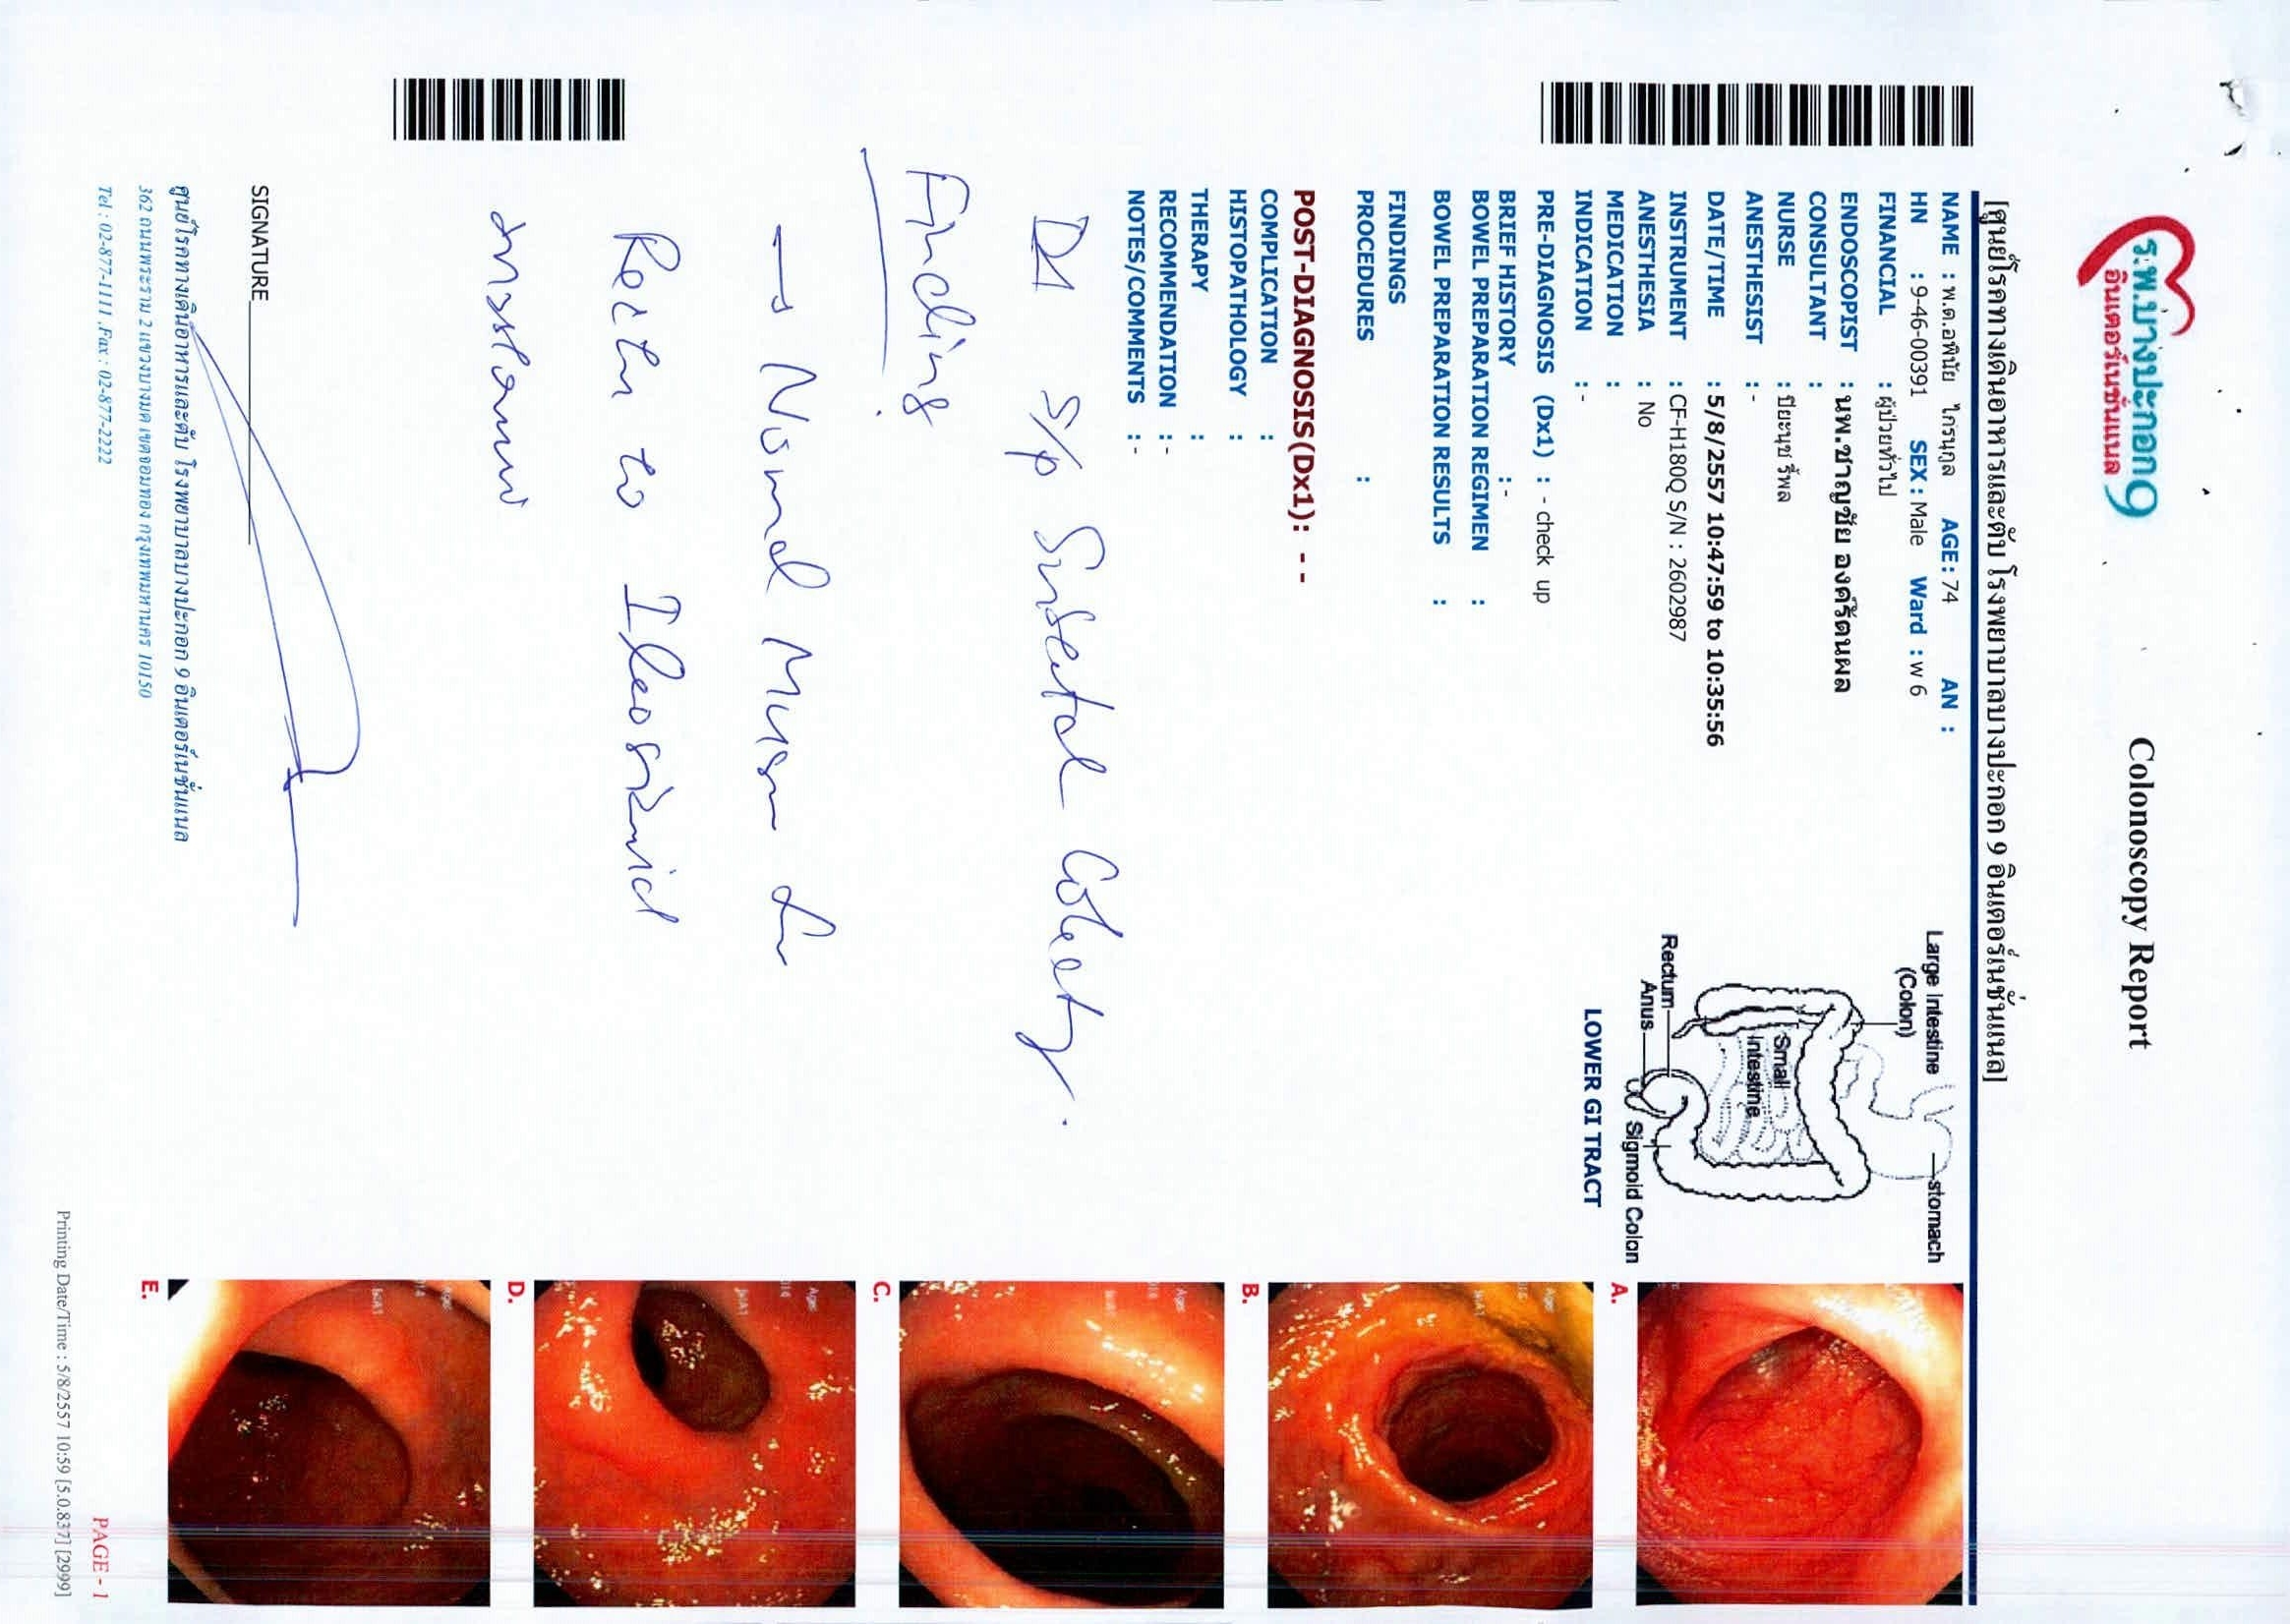 ร.พ.บางปะกอก 9
อินเตอร์เนชั่นแนล
Colonoscopy Report
[ศูนย์โรคทางเดินอาหารและตับ โรงพยาบาลบางปะกอก 9 อินเตอร์เนชั่นแนล]
NAME : พ.ต.อพินัย ไกรนุกูล AGE: 74 AN :
HN : 9-46-00391 SEX : Male Ward : w 6
FINANCIAL : ผู้ป่วยทั่วไป
ENDOSCOPIST : นพ.ชาญชัย องค์รัตนผล
CONSULTANT :
NURSE : ปิยะนุช รี้พล
ANESTHESIST : -
DATE/TIME : 5/8/2557 10:47:59 to 10:35:56
INSTRUMENT : CF-H180Q S/N : 2602987
ANESTHESIA : No
MEDICATION :
INDICATION : -
PRE-DIAGNOSIS (Dx1) : - check up
BRIEF HISTORY : -
BOWEL PREPARATION REGIMEN :
BOWEL PREPARATION RESULTS :
FINDINGS
PROCEDURES :
POST-DIAGNOSIS(Dx1): - -
COMPLICATION :
HISTOPATHOLOGY :
THERAPY :
RECOMMENDATION : -
NOTES/COMMENTS : -
Large Intestine
(Colon)
stomach
Small
Intestine
Rectum
Anus
Sigmoid Colon
LOWER GI TRACT
S/P
Finding
→ Normal
to
SIGNATURE
ศูนย์โรคทางเดินอาหารและตับ โรงพยาบาลบางปะกอก 9 อินเตอร์เนชั่นแนล
362 ถนนพระราม 2 แขวงบางมด เขตจอมทอง กรุงเทพมหานคร 10150
Tel : 02-877-1111 ,Fax : 02-877-2222
A.
B.
C.
D.
E.
PAGE - 1
Printing Date/Time : 5/8/2557 10:59 [5.0.837] [2999]